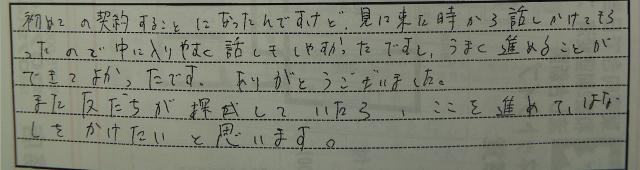 初めての契約することになったんですけど、見に来た時から話しかけてもら
ったので中に入りやすく話しもしやすかったですし、うまく進めることが
できてよかったです。ありがとうございました。
また友たちが探していたら、ここを進めて、はな
しをかけたいと思います。